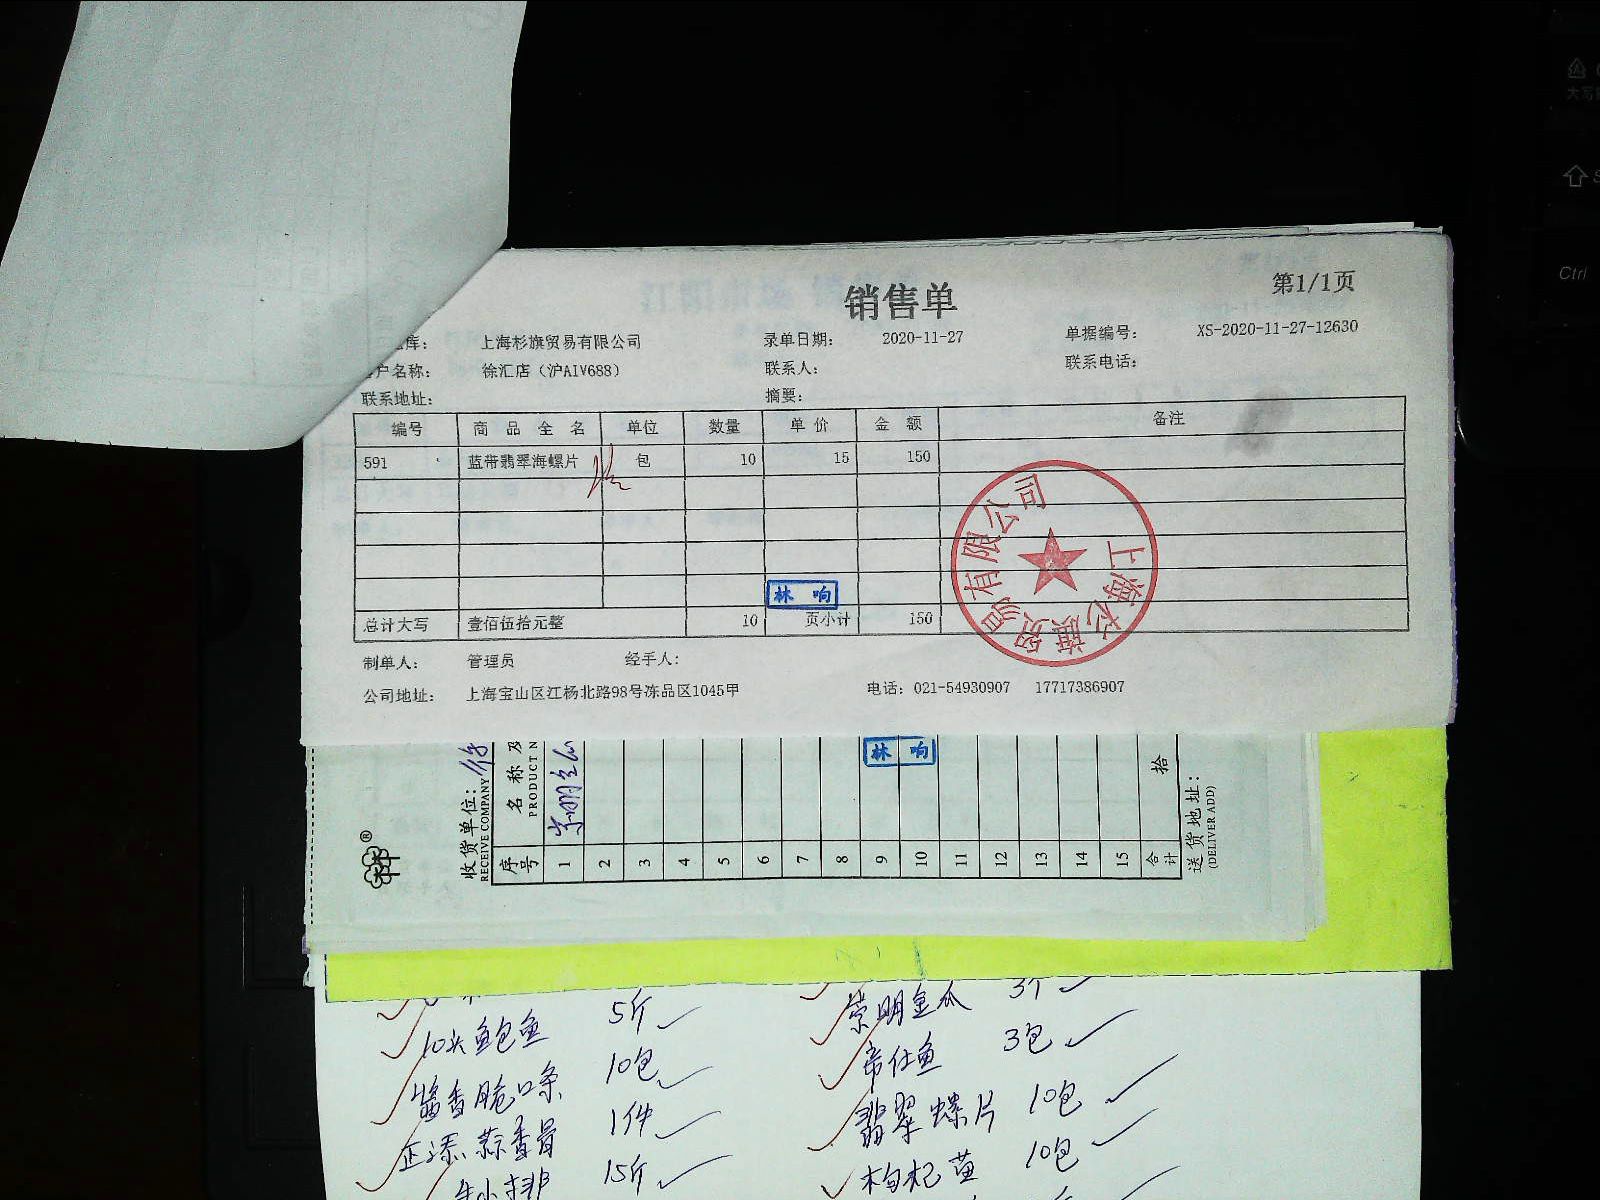 销售单
第1/1页
库： 上海杉旗贸易有限公司 录单日期： 2020-11-27 单据编号： XS-2020-11-27-12630
户名称： 徐汇店（沪AIV688） 联系人： 联系电话：
联系地址： 摘要：
编号 商品全名 单位 数量 单价 金额 备注
591 蓝带翡翠海螺片 包 10 15 150
林响
总计大写 壹佰伍拾元整 10 页小计 150
上海杉旗贸易有限公司
制单人： 管理员 经手人：
公司地址： 上海宝山区江杨北路98号冻品区1045甲 电话：021-54930907 17717386907
林响
收货单位：
RECEIVE COMPANY
序号 名称及
PRODUCT N
1 崇明
2
3
4
5
6
7
8
9
10
11
12
13
14
15
合计 拾
送货地址：
(DELIVER ADD)
崇明金瓜 3个
10头鲍鱼 5斤
帝仕鱼 3包
酱香脆口条 10包
翡翠螺片 10包
正添蒜香骨 1件
枸杞苗 10包
15斤
大写
Ctrl